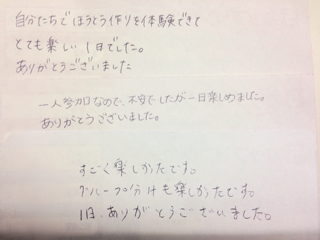 自分たちでほうとう作りを体験できて
とても楽しい1日でした。
ありがとうございました
一人参加なので、不安でしたが一日楽しめました。
ありがとうございました。
すごく楽しかたです。
グループ分けも楽しかたです。
1日、ありがとうございました。